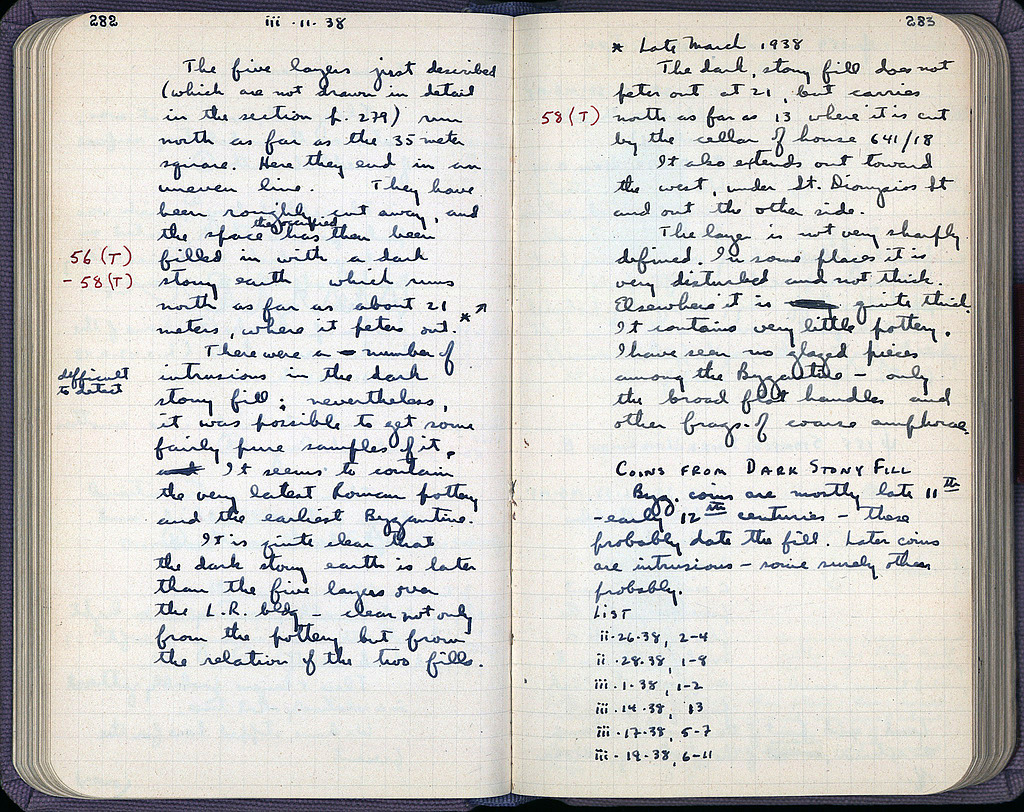 282
iii · 11 · 38
The five layers just described
(which are not drawn in detail
in the section p. 279) run
north as far as the 35 meter
square. Here they end in an
uneven line. They have
been roughly cut away, and
the space thus has then been
filled in with a dark
56 (T)
- 58 (T)
stony earth which runs
north as far as about 21
meters, where it peters out. * ↗
There were a number of
difficult
to detect
intrusions in the dark
stony fill; nevertheless,
it was possible to get some
fairly pure samples of it.
It seems to contain
the very latest Roman pottery
and the earliest Byzantine.
It is quite clear that
the dark stony earth is later
than the five layers over
the L.R. bldg – clear not only
from the pottery but from
the relation of the two fills.
283
* Late March 1938
The dark, stony fill does not
peter out at 21, but carries
58 (T)
north as far as 13 where it is cut
by the cellar of house 641/18
It also extends out toward
the west, under St. Dionysios St
and out the other side.
The layer is not very sharply
defined. In some places it is
very disturbed and not thick.
Elsewhere it is quite thick.
It contains very little pottery.
I have seen no glazed pieces
among the Byzantine – only
the broad flat handles and
other frags. of coarse amphorae.
COINS FROM DARK STONY FILL
Byz. coins are mostly late 11th
- early 12th centuries – these
probably date the fill. Later coins
are intrusions – some surely others
probably.
LIST
ii · 26 · 38, 2-4
ii · 28 · 38, 1-8
iii · 1 · 38, 1-2
iii · 14 · 38, 13
iii · 17 · 38, 5-7
iii · 19 · 38, 6-11